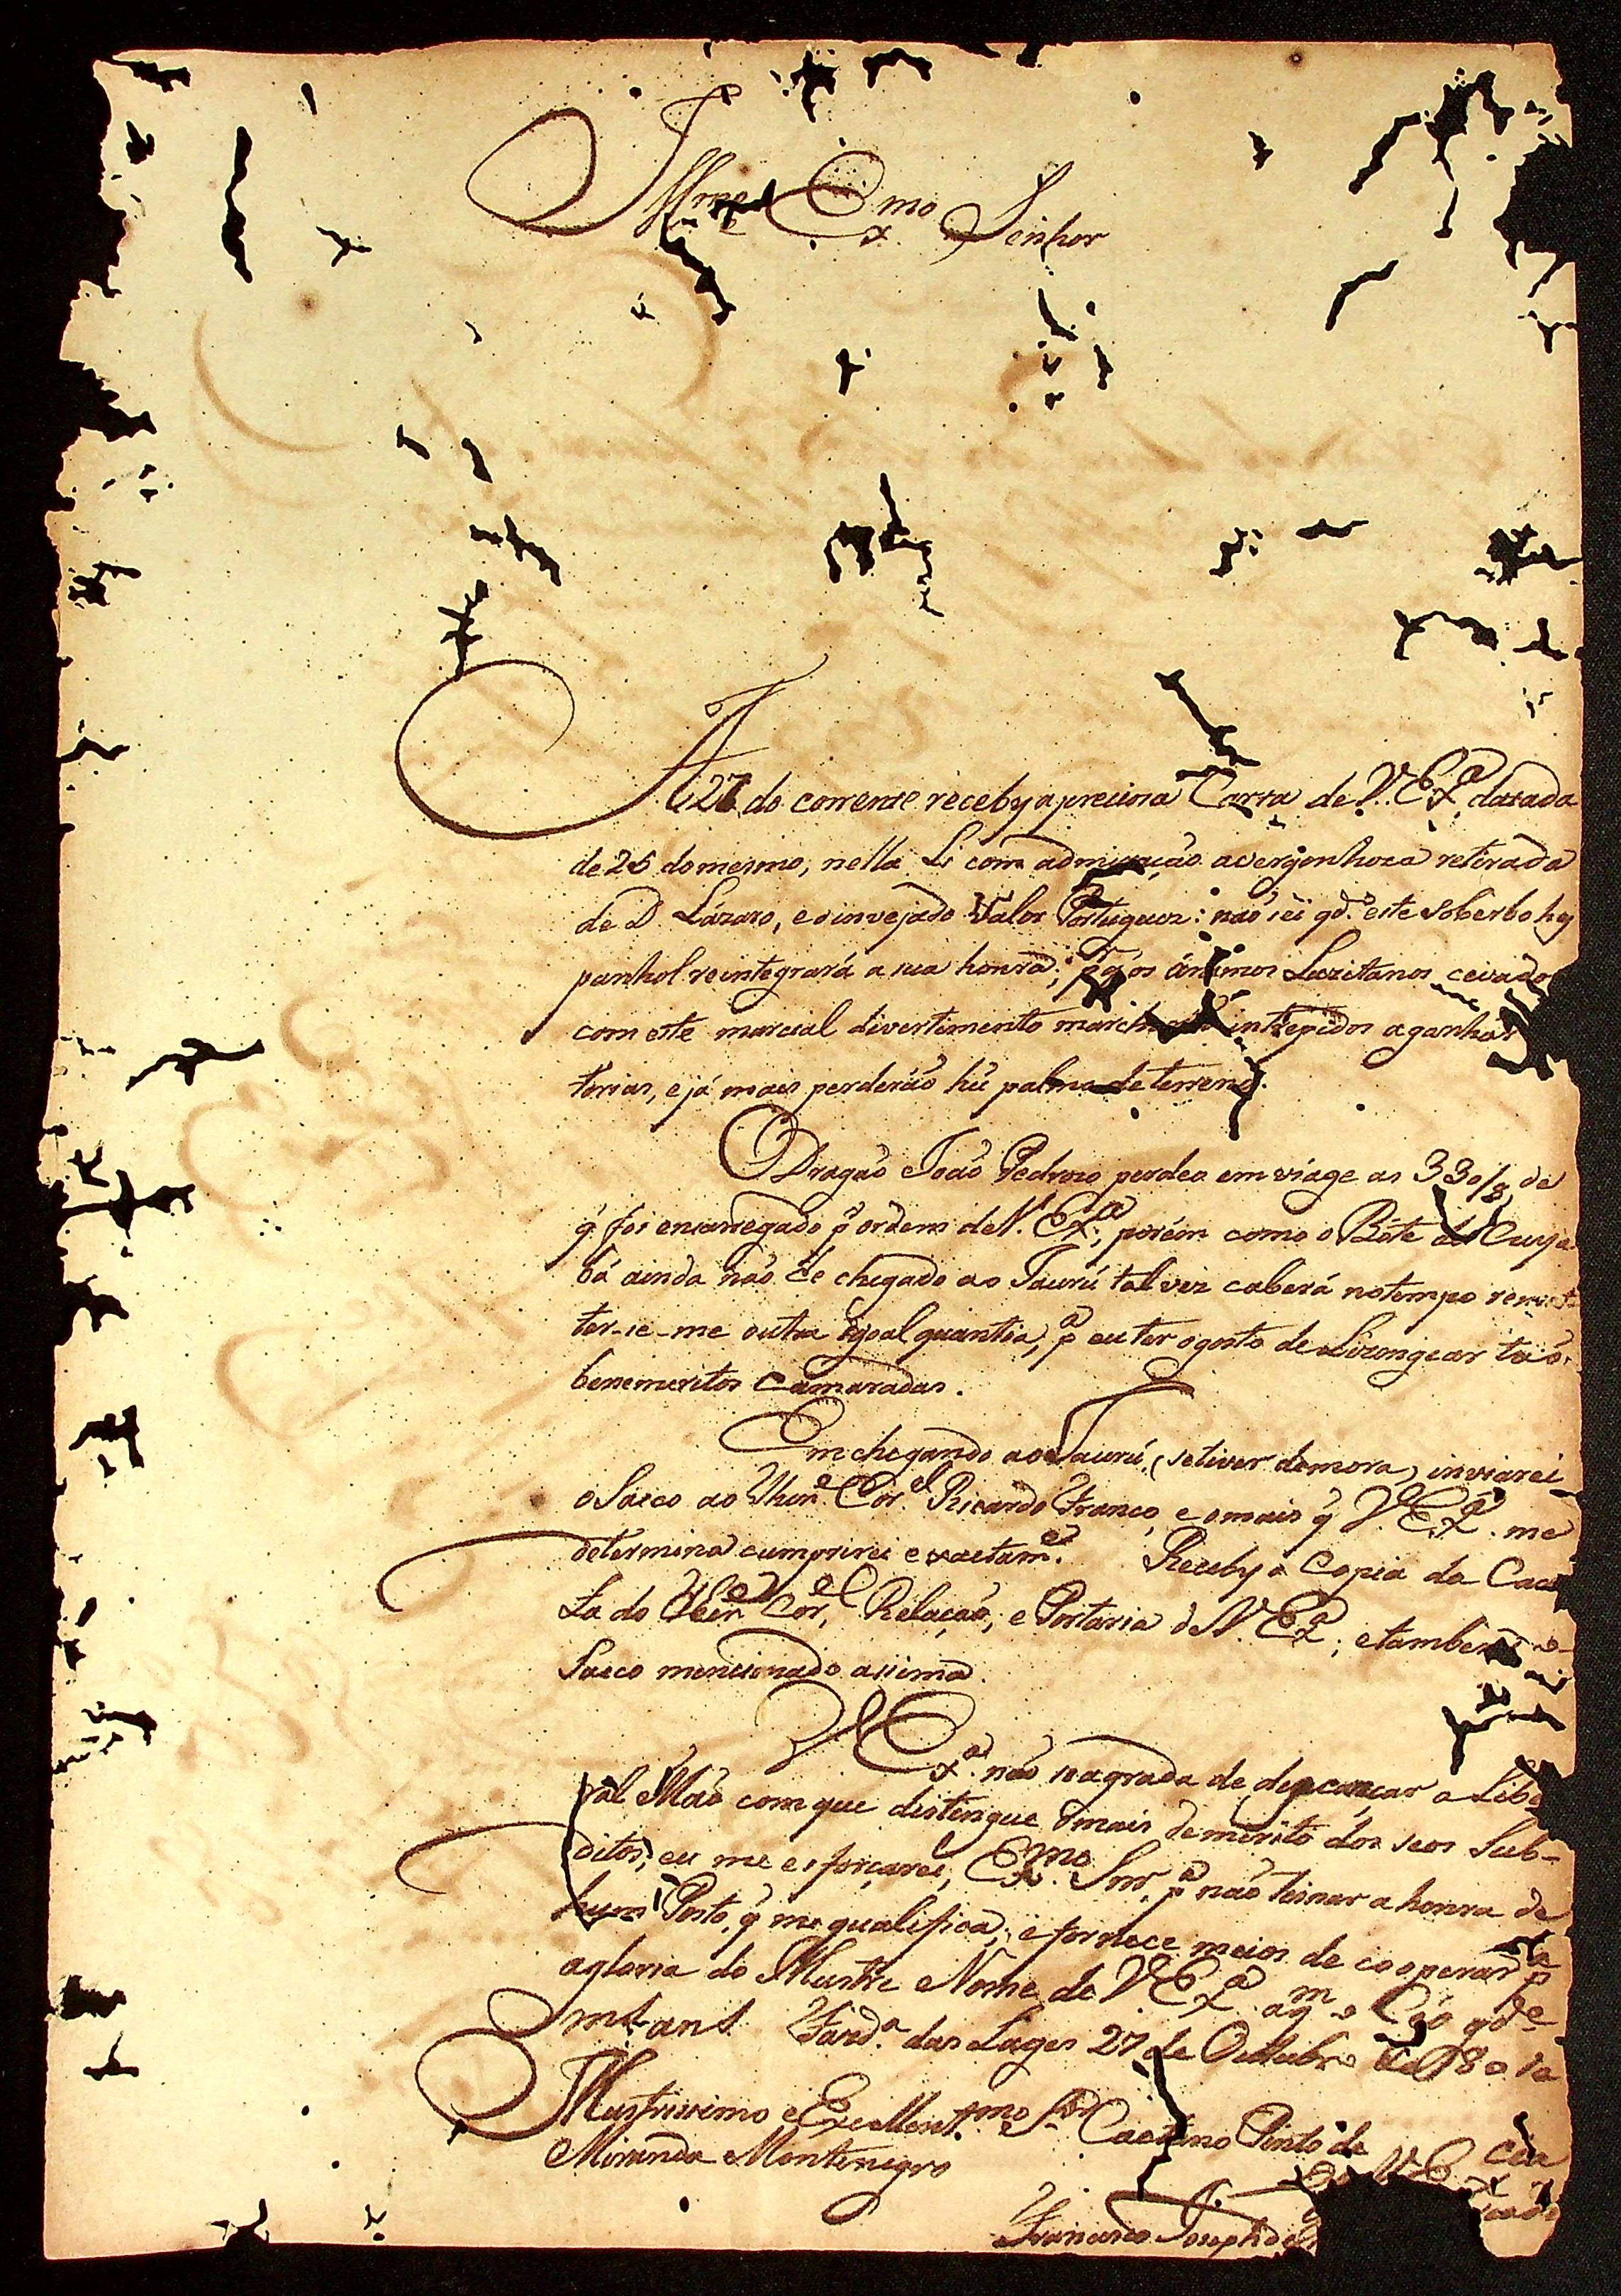 Illmo e Exmo Senhor
A 27 do corrente receby a precioza Carta de V. Exa datada
de 25 do mesmo, nella Li com admiração a vergonhoza retirada
de D. Lázaro, e o invejado Valor Portuguez: não sei qdo este soberbo hes
panhol reintegrará a sua honra; pr q os ânimos Luzitanos cevados
com este marcial divertimento marcharão intrepidos a ganhar
torias, e já mais perderáõ hũ palmo de terreno.
O Dragaõ Joaõ Pedrozo perdeo em viage as 330/8 de
q̃ foi encarregado pr ordem de V. Exa; porém como o Bote do Cuya
bá ainda naõ he chegado ao Jaurú talvez caberá no tempo remet
ter-se-me outra igoal quantia, pa eu ter o gosto de Lizongear taõ
benemeritos camaradas.
Em chegando ao Jaurú, (se tiver demora) inviarei
o Sacco ao Thene Corel Ricardo Franco, e o mais q̃ V. Exa. me
determina cumprirei exactame. Receby a Copia da Car
ta do Tene Corel, Relação, e Portaria de V. Exa; e tambem o
Sacco mencionado assima.
V Exa. não se agrada de descançar a Libe
ral Maõ com que distingue o mais demerito dos seos Sub-
ditos; eu me esforçarei, Exmo. Snr, pa naõ tisnar a honra de
hum Posto, q̃ me qualifica, e fornece meios de cooperar pa
a gloria do Illustre Nome de V Exa a qm o Céo gde
ms ans Fazda. das Lages 27 de Outubro de 1801
Illustrissimo e Excellentmo Snr Caetano Pinto de
Miranda Montenegro
De V Excia
Francisco Joseph de